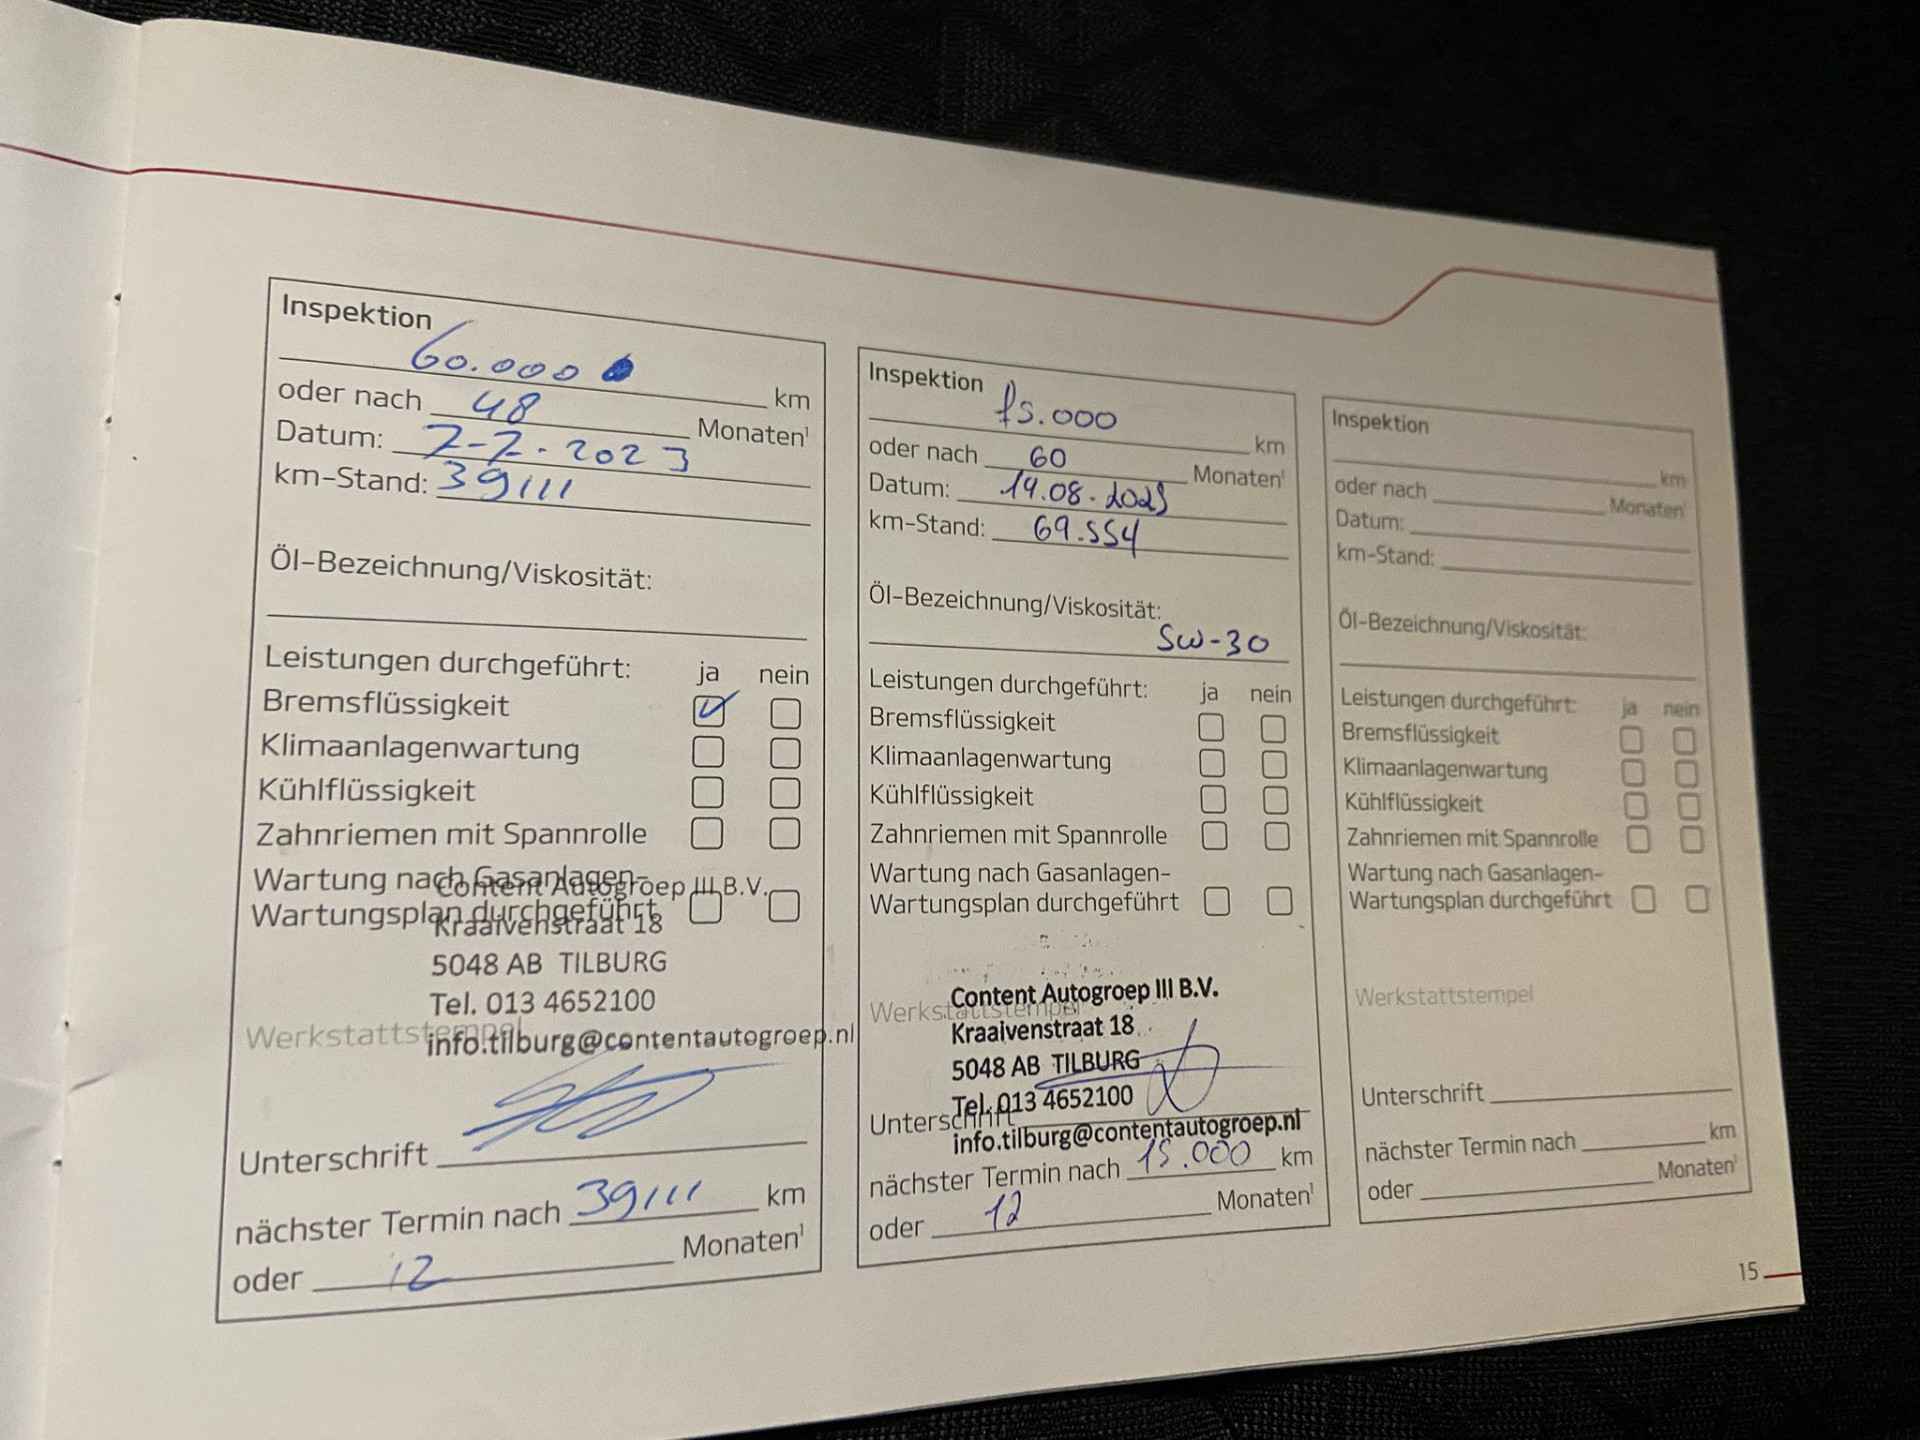 Inspektion
60.000 km
oder nach 48 Monaten¹
Datum: 7-7-2023
km-Stand: 39111
Öl-Bezeichnung/Viskosität:
Leistungen durchgeführt: ja nein
Bremsflüssigkeit
Klimaanlagenwartung
Kühlflüssigkeit
Zahnriemen mit Spannrolle
Wartung nach Gasanlagen-
Wartungsplan durchgeführt
Content Autogroep III B.V.
Kraaivenstraat 18
5048 AB TILBURG
Tel. 013 4652100
Werkstattstempel
info.tilburg@contentautogroep.nl
Unterschrift
nächster Termin nach 39111 km
oder 12 Monaten¹
Inspektion
75.000 km
oder nach 60 Monaten¹
Datum: 14.08.2023
km-Stand: 69.554
Öl-Bezeichnung/Viskosität:
5w-30
Leistungen durchgeführt: ja nein
Bremsflüssigkeit
Klimaanlagenwartung
Kühlflüssigkeit
Zahnriemen mit Spannrolle
Wartung nach Gasanlagen-
Wartungsplan durchgeführt
Content Autogroep III B.V.
Werkstattstempel
Kraaivenstraat 18
5048 AB TILBURG
Tel. 013 4652100
Unterschrift
info.tilburg@contentautogroep.nl
nächster Termin nach 15.000 km
oder 12 Monaten¹
Inspektion
km
oder nach Monaten¹
Datum:
km-Stand:
Öl-Bezeichnung/Viskosität:
Leistungen durchgeführt: ja nein
Bremsflüssigkeit
Klimaanlagenwartung
Kühlflüssigkeit
Zahnriemen mit Spannrolle
Wartung nach Gasanlagen-
Wartungsplan durchgeführt
Werkstattstempel
Unterschrift
nächster Termin nach km
oder Monaten¹
15